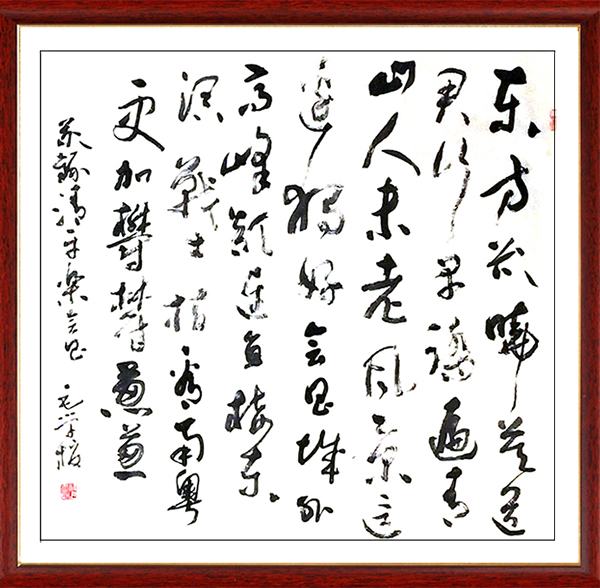 东方欲晓莫道
君行早踏遍青
山人未老风景这
边独好会昌城外
高峰颠连直接东
溟戰士指看南粤
更加欝欝葱葱
錄清平樂会昌